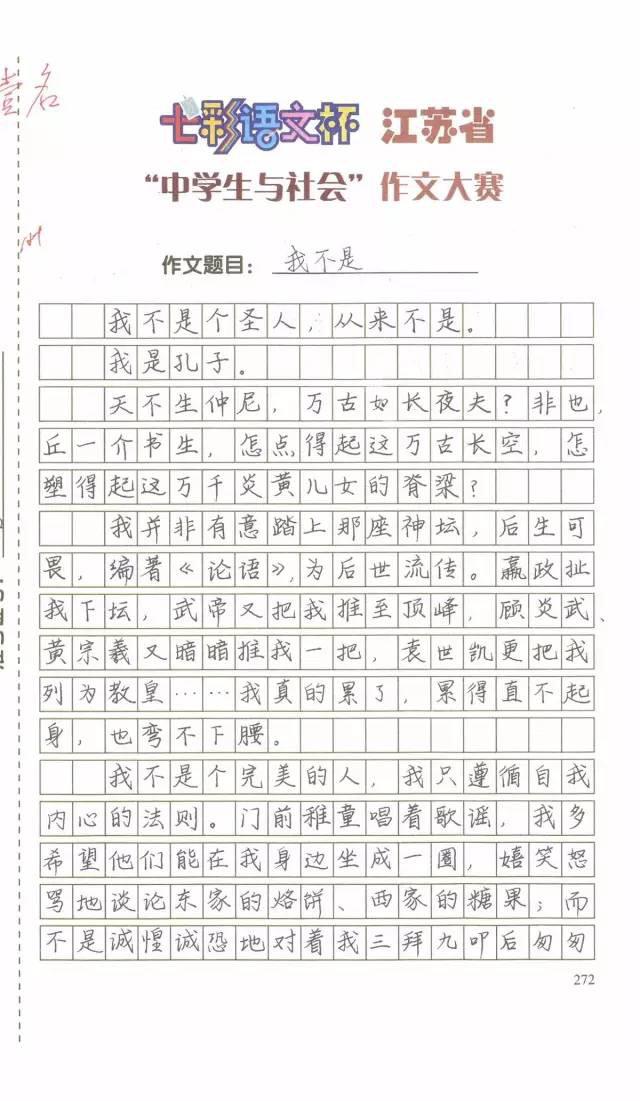 壹名
七彩语文杯 江苏省
“中学生与社会”作文大赛
作文题目：我不是
我不是个圣人，从来不是。
我是孔子。
天不生仲尼，万古如长夜夫？非也，
丘一介书生，怎点得起这万古长空，怎
塑得起这万千炎黄儿女的脊梁？
我并非有意踏上那座神坛，后生可
畏，编著《论语》，为后世流传。嬴政扯
我下坛，武帝又把我推至顶峰，顾炎武、
黄宗羲又暗暗推我一把，袁世凯更把我
列为教皇……我真的累了，累得直不起
身，也弯不下腰。
我不是个完美的人，我只遵循自我
内心的法则。门前稚童唱着歌谣，我多
希望他们能在我身边坐成一圈，嬉笑怒
骂地谈论东家的烙饼、西家的糖果；而
不是诚惶诚恐地对着我三拜九叩后匆匆
272